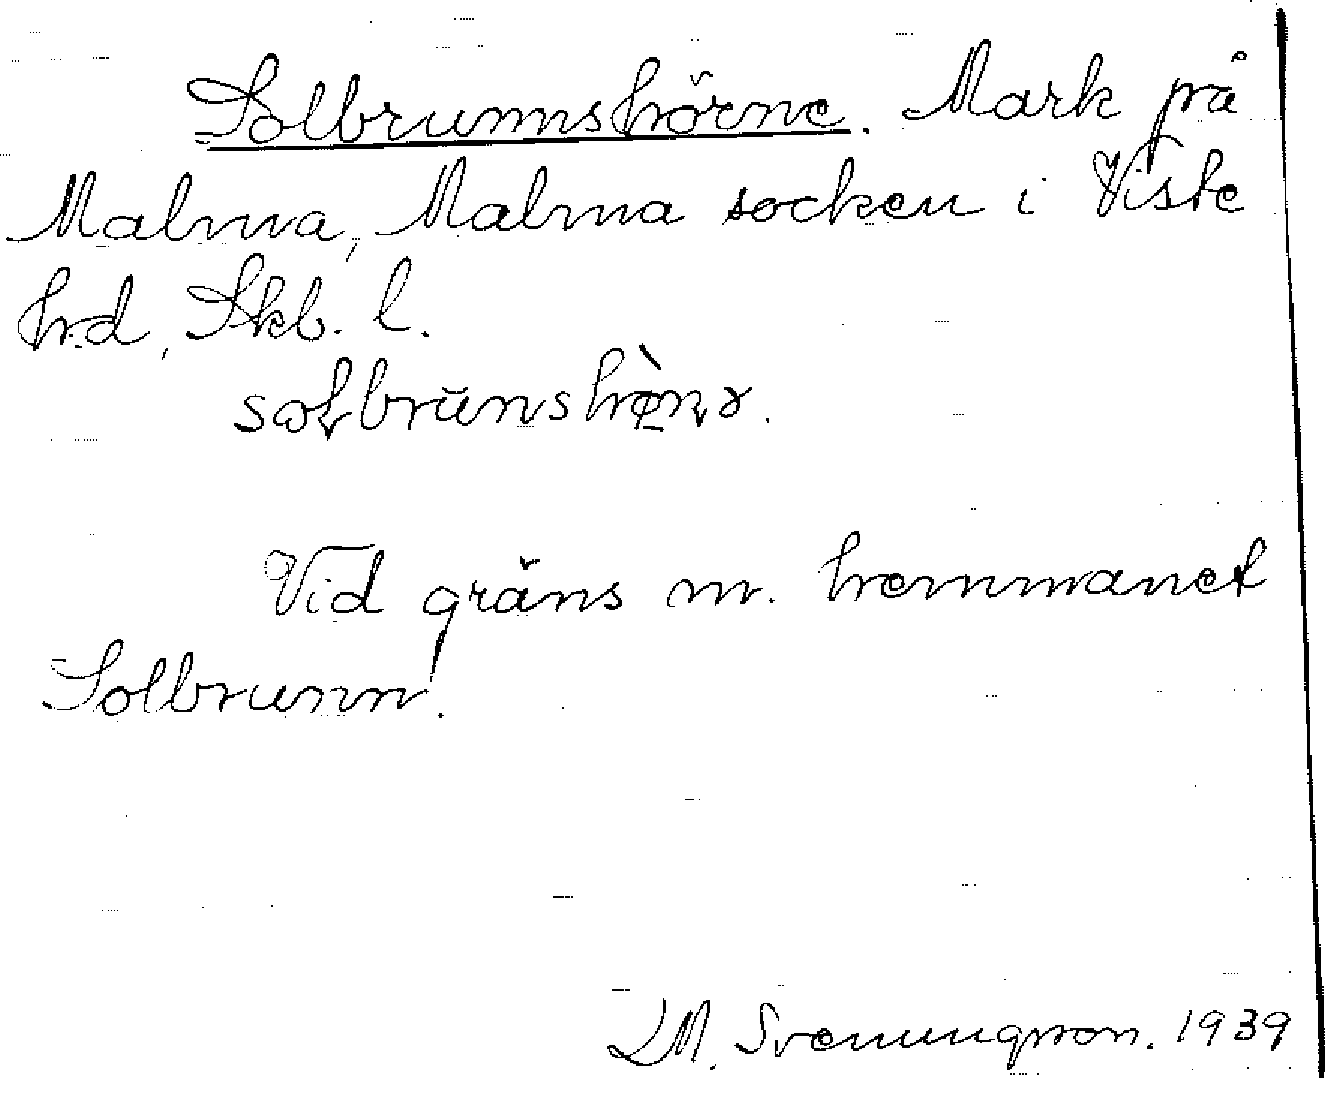 Solbrunnshörne. Mark på
Malma, Malma socken i Viste
hd, Skb. l.
Vid gräns m. hemmanet
Solbrunn.
LM. Svenungsson. 1939